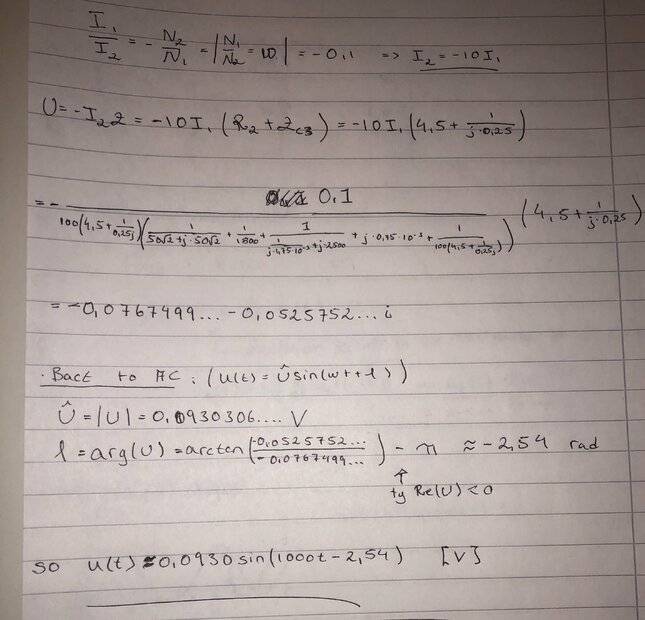 I₁/I₂ = - N₂/N₁ = |N₁/N₂ = 10| = -0,1 => I₂ = -10I₁
U = -I₂Z = -10I₁(R₂+Z_C3) = -10I₁(4,5+1/(j·0,25))
= - 0.1/(100(4,5+1/(0,25j))(1/(50√2+j·50√2) + 1/1800 + 1/(1/(j·4,75·10⁻³)+j·2500) + j·0,75·10⁻³ + 1/(100(4,5+1/(0,25j))))) (4,5+1/(j·0,25))
= -0,0767499... -0,0525752... i
· Bact to AC: (u(t) = Û sin(wt+φ))
Û = |U| = 0,0930306.... V
φ = arg(U) = arctan(-0,0525752.../-0,0767499...) - π ≈ -2,54 rad
↑
ty Re(U) < 0
so u(t) ≈ 0,0930 sin(1000t - 2,54) [V]